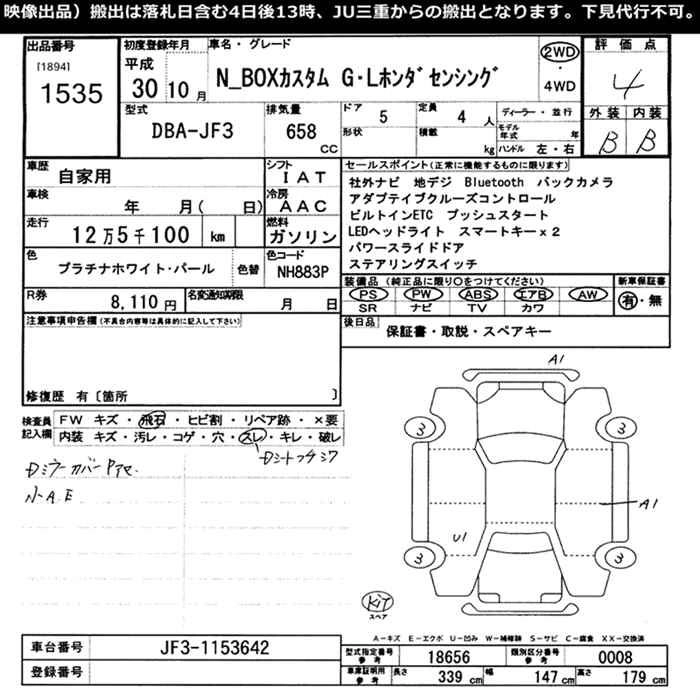 映像出品）搬出は落札日含む4日後13時、JU三重からの搬出となります。下見代行不可。
出品番号 初度登録年月 車名・グレード 2WD・4WD 評価点
[1894] 1535 平成 30 10月 N_BOXカスタム G・Lホンダセンシング 4
型式 排気量 ドア形状 5 定員 4人 積載 kg ディーラー・並行 モデル年式 年 ハンドル 左・右 外装 内装
DBA-JF3 658 CC B B
車歴 自家用 シフト IAT セールスポイント(正常に機能するものに限ります)
車検 年 月( 日) 冷房 AAC
社外ナビ 地デジ Bluetooth バックカメラ
アダプティブクルーズコントロール
走行 12万5千100 km 燃料 ガソリン
ビルトインETC プッシュスタート
LEDヘッドライト スマートキーx2
パワースライドドア
ステアリングスイッチ
色 プラチナホワイト・パール 色替 色コード NH883P
装備品(純正品に限り○をつけてください) 新車保証書
PS PW ABS エアB AW 有・無
SR ナビ TV カワ
R券 8,110円 名変通知期限 月 日
後日品 保証書・取説・スペアキー
注意事項申告欄(不具合内容等は具体的に記入して下さい)
修復歴 有〔箇所 〕
検査員記入欄 FW キズ・飛石・ヒビ割・リペア跡・×要
内装 キズ・汚レ・コゲ・穴・スレ・キレ・破レ
N-A.E
A1
3 3
A1
U1
3 3
スペア
A-キズ E-エクボ U-凹み W-補修跡 S-サビ C-腐食 XX-交換済
車台番号 JF3-1153642
登録番号
型式指定番号 参考 18656 類別区分番号 参考 0008
車庫証明用 参考 長さ 339 cm 幅 147 cm 高さ 179 cm